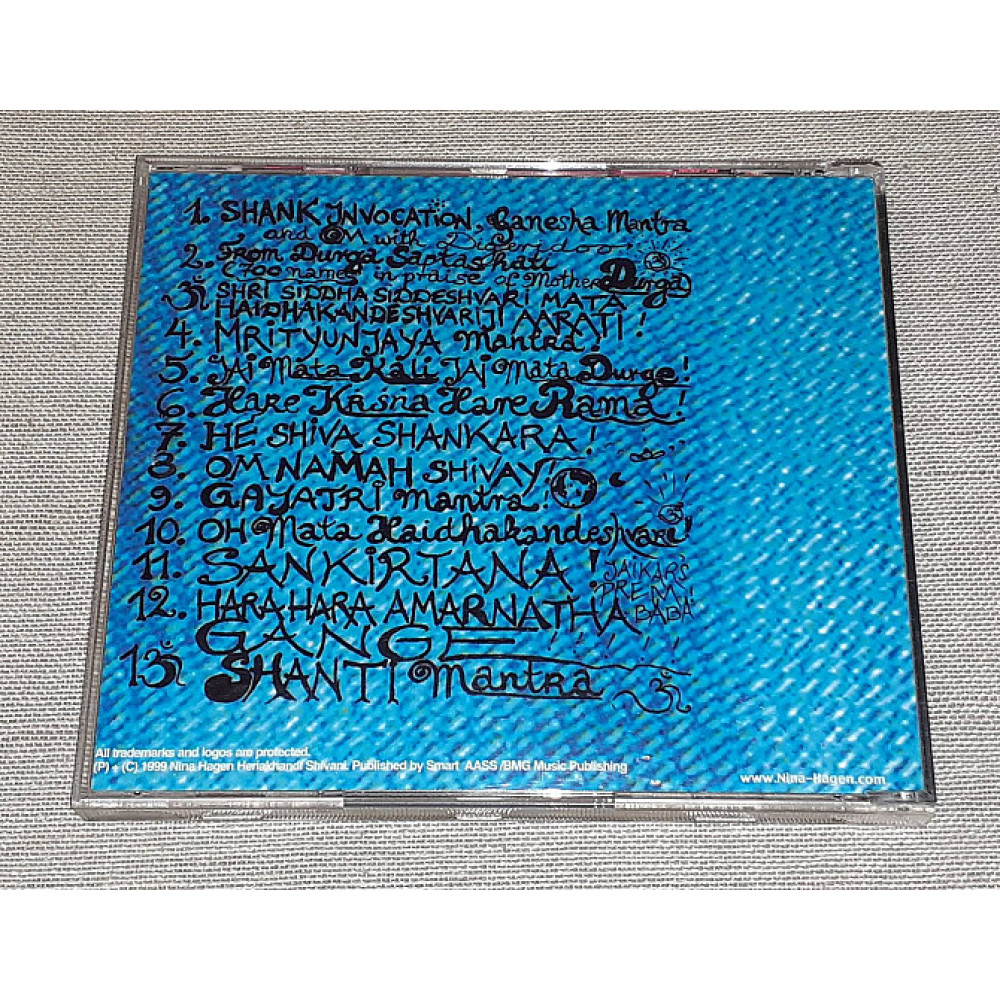 1. SHANK INVOCATION, Ganesha Mantra
and OM with Digeridoo
2. From Durga Saptashati
(700 names in praise of Mother Durga)
3ॐ SHRI SIDDHA SIDDESHVARI MATA
HAIDHAKANDESHVARIJI AARATI!
4. MRITYUNJAYA mantra!
5. JAI Mata Kali JAI Mata Durge!
6. Hare Krsna Hare Rama!
7. HE SHIVA SHANKARA!
8. OM NAMAH SHiVAY!
9. GAYATRI mantra!
10. OH Mata Haidhakandeshvari!
11. SANKiRTANA! JAIKARS
PREM
BABA
12. HARA HARA AMARNATHA
GANGE!!!!
13ॐ SHANTI mantra ॐ
All trademarks and logos are protected.
(P) + (C) 1999 Nina Hagen Heriakhandi Shivani. Published by Smart AASS /BMG Music Publishing
www.Nina-Hagen.com